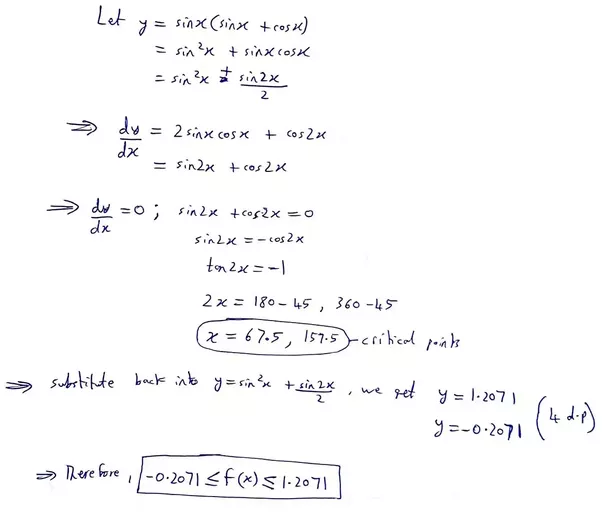 Let y = sinx(sinx + cosx)
= sin²x + sinxcosx
= sin²x + sin2x/2
⇒ dy/dx = 2sinxcosx + cos2x
= sin2x + cos2x
⇒ dy/dx = 0 ; sin2x + cos2x = 0
sin2x = -cos2x
tan2x = -1
2x = 180-45 , 360-45
x = 67.5 , 157.5 - critical points
⇒ substitute back into y = sin²x + sin2x/2 , we get y = 1.2071
y = -0.2071 (4 d.p)
⇒ Therefore, -0.2071 ≤ f(x) ≤ 1.2071